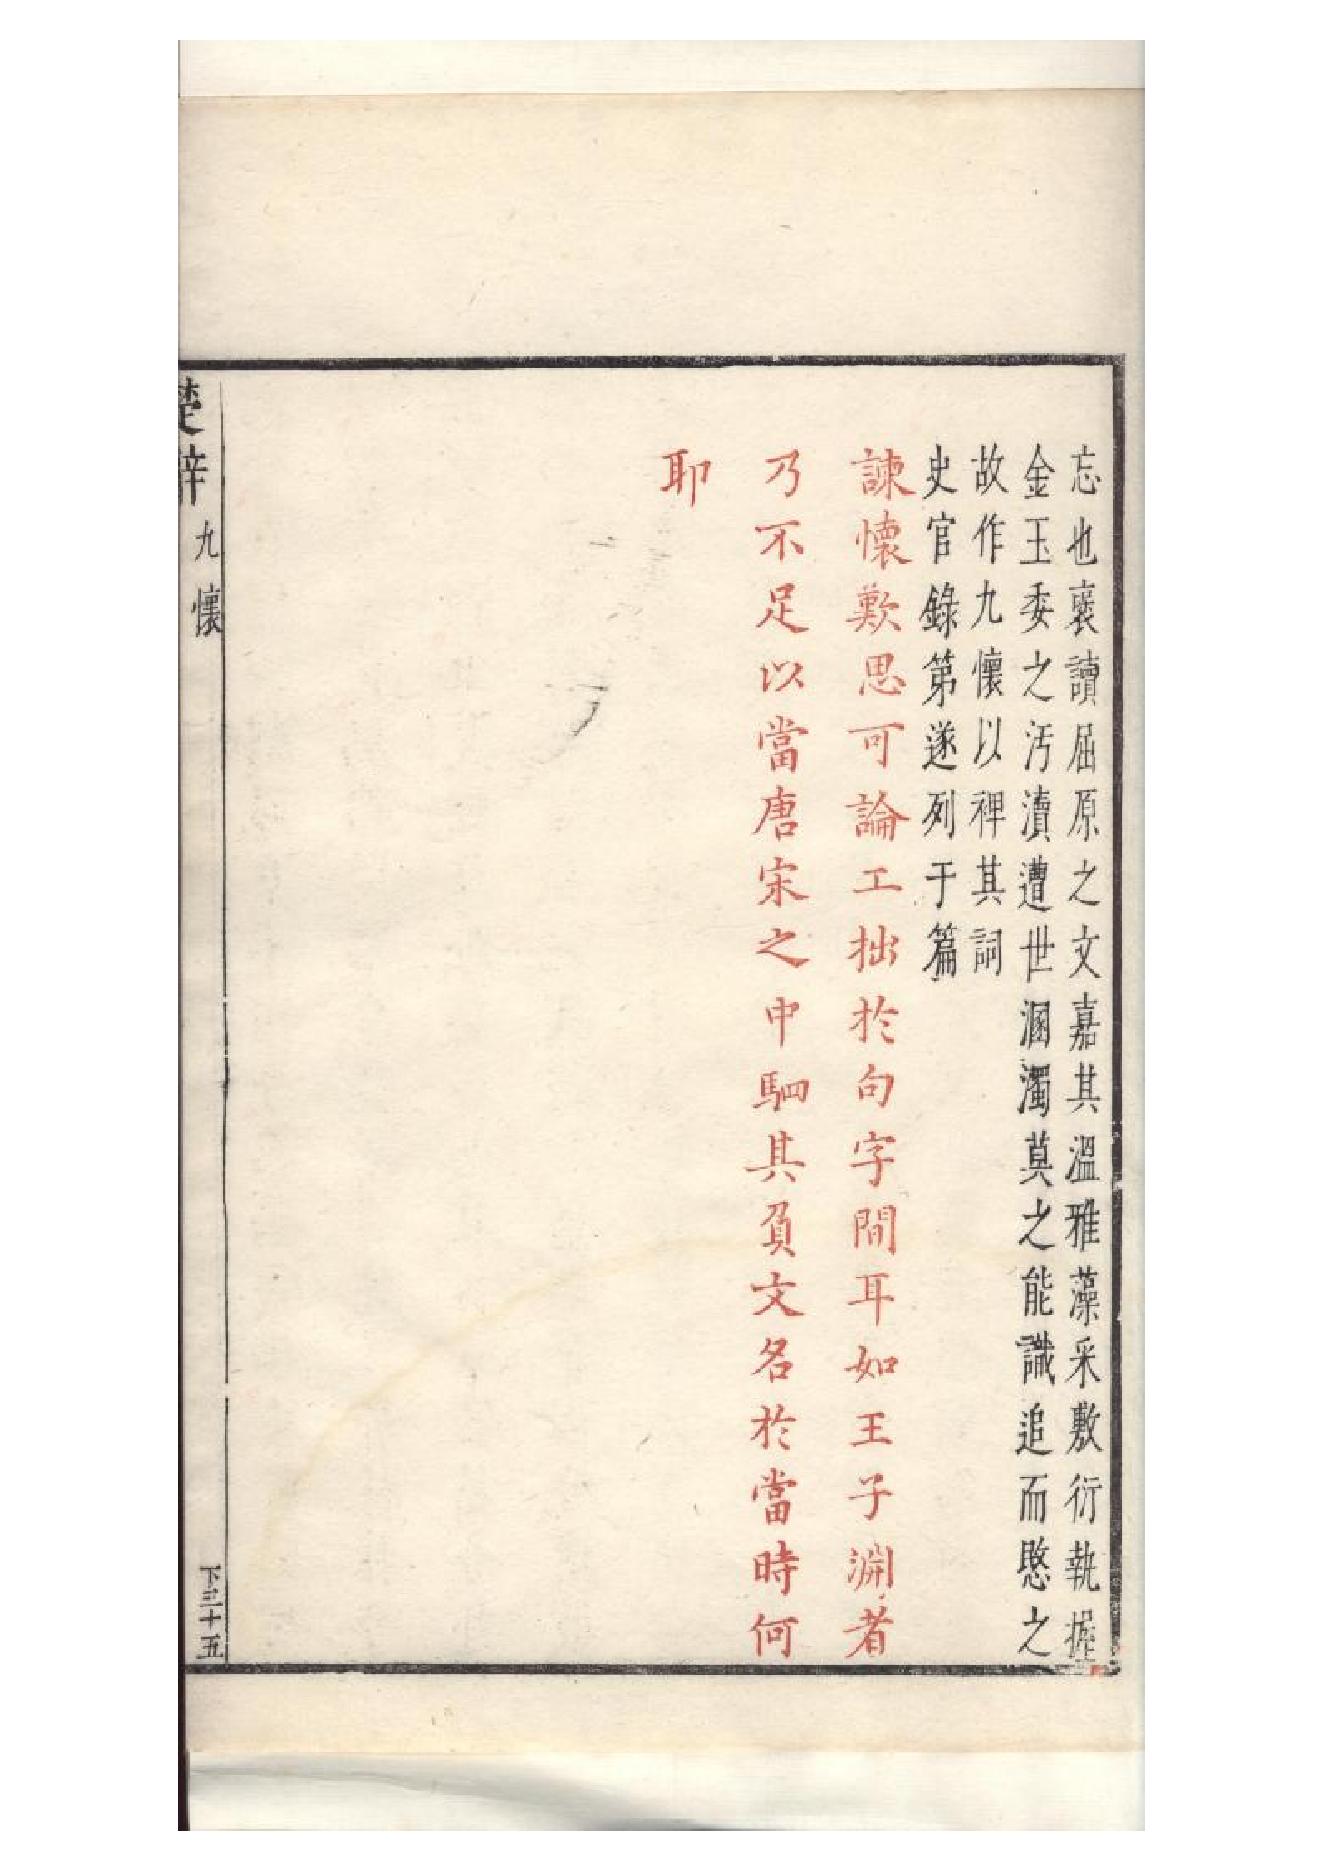 忘也裒讀屈原之文嘉其溫雅藻采敷衍執握
金玉委之汚瀆遭世溷濁莫之能識追而愍之
故作九懷以裨其詞
史官錄第遂列于篇
諫懷歎思可論工拙於句字間耳如王子淵者
乃不足以當唐宋之中駟其負文名於當時何
耶
楚辞
九懷
下三十五